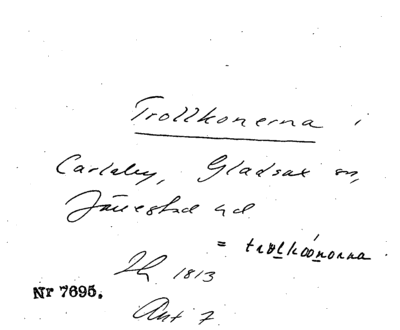 Trollkonerna i
Carlaby, Gladsax sn,
Järrestad hd
= trolkóonorna
1813
Nr 7695.
Ant 7